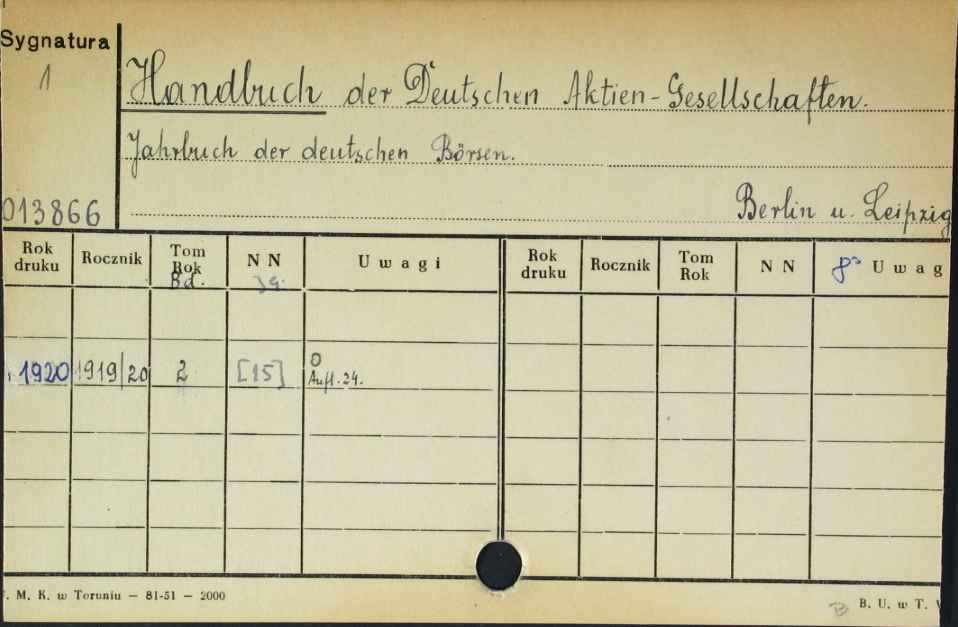 Sygnatura
1
Handbuch der Deutschen Aktien-Gesellschaften.
Jahrbuch der deutschen Börsen.
013866
Berlin u. Leipzig
Rok druku Rocznik Tom Rok Bd. NN Jg. Uwagi Rok druku Rocznik Tom Rok NN 8° Uwag
1920 1919/20 2 [15] O
Aufl. 24.
. M. K. w Toruniu — 81-51 — 2000
B B. U. w T.